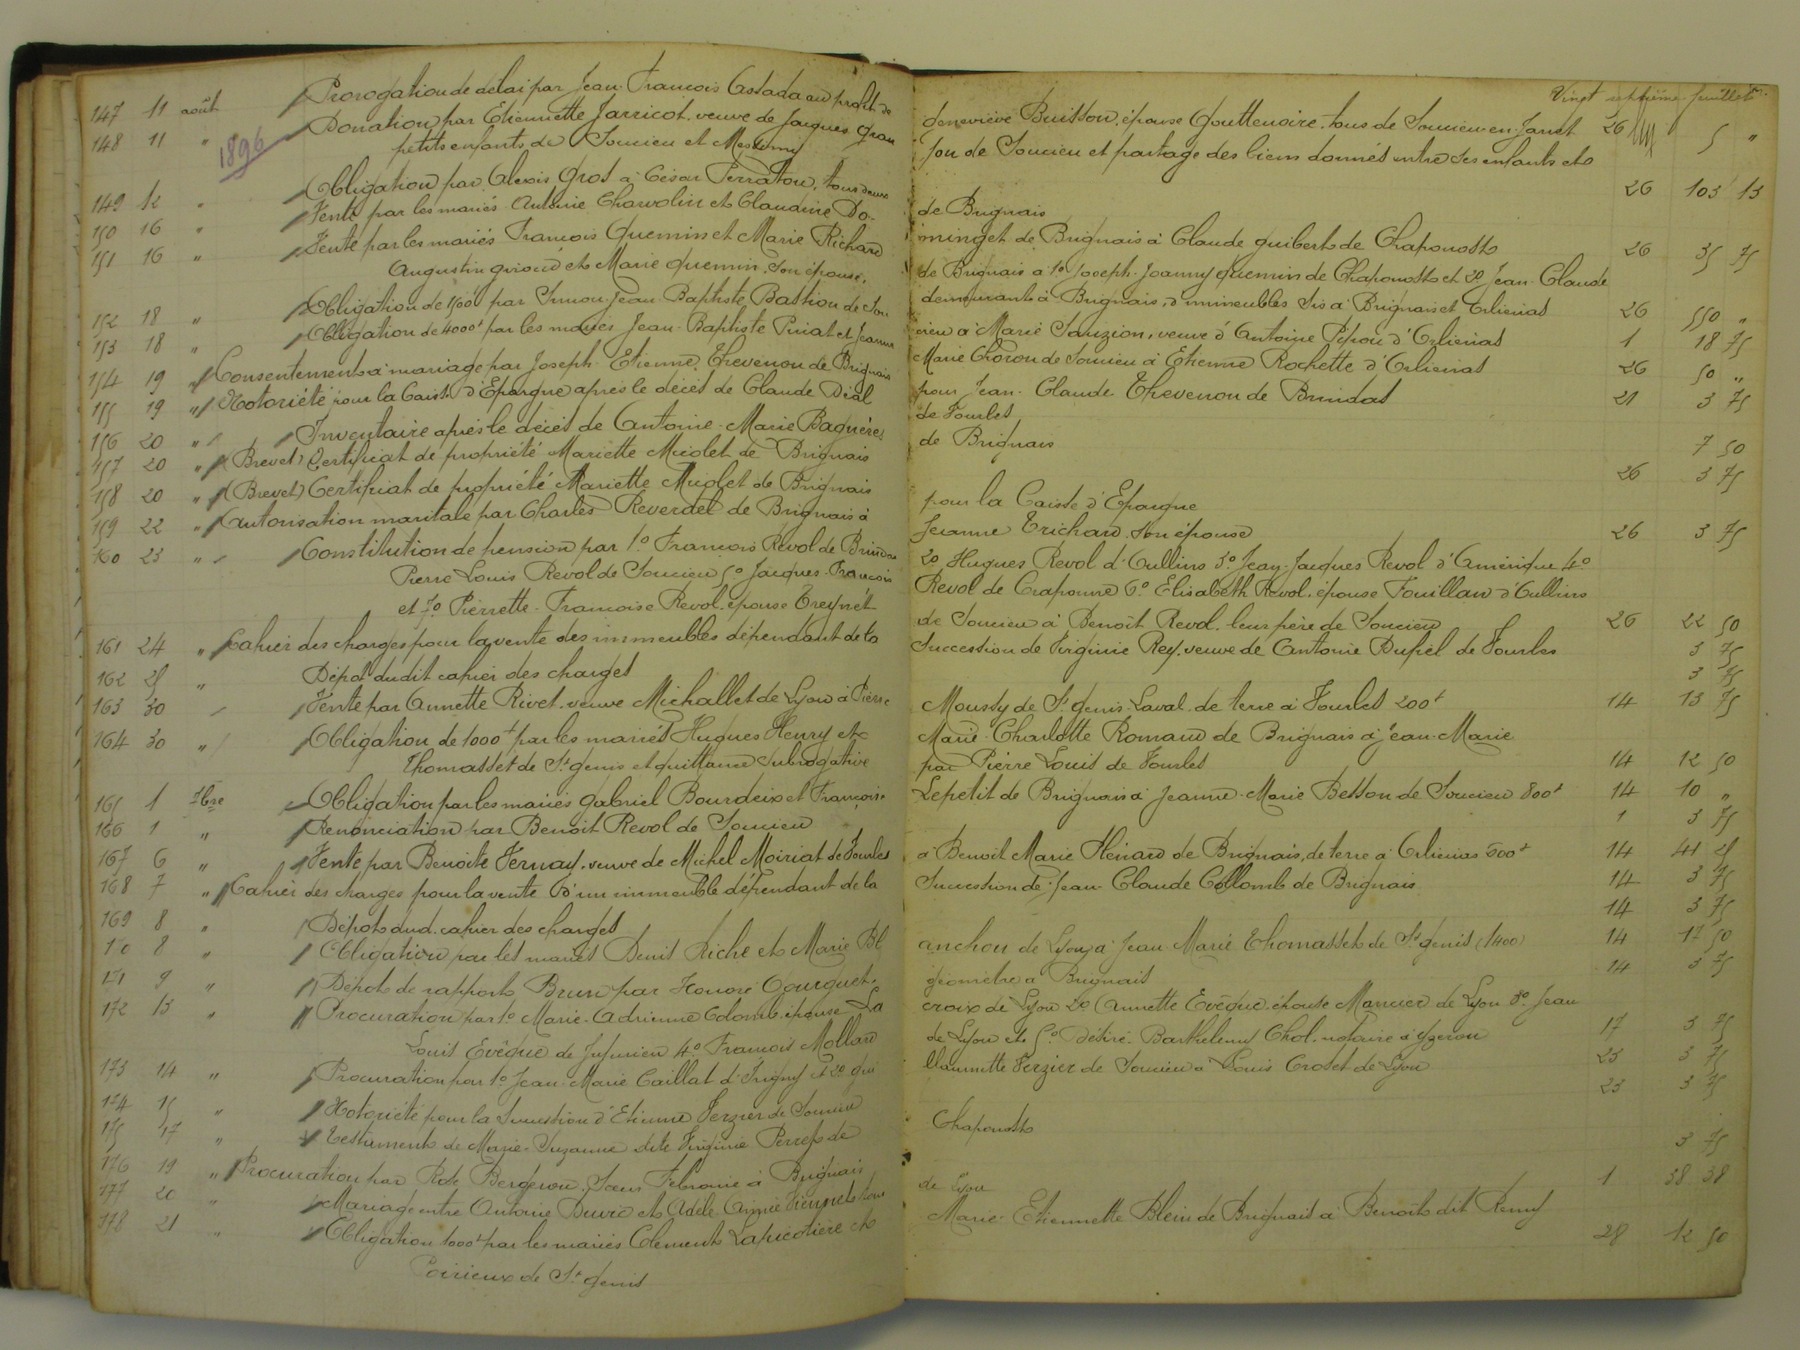 Vingt septième feuillet
147 11 août Prorogation de délai par Jean François Cassada au profit de
Geneviève Buisson, épouse Gouttenoire, tous de Soucieu-en-Jarret 26 5 "
148 11 " Donation par Etiennette Jarricot, veuve de Jacques Gran
jou de Soucieu et partage des biens donnés entre ses enfants et
1896
petits enfants de Soucieu et Messimy
26 103 13
149 12 " Obligation par Alexis Gros à César Ferraton, tous deux
de Brignais
150 16 " Vente par les mariés Antoine Chavolin et Claudine Do-
minget de Brignais à Claude Guibert de Chaponost 26 35 75
151 16 " Vente par les mariés François Quemin et Marie Richard
de Brignais à 1º Joseph-Joanny Quemin de Chaponost et 2º Jean-Claude
Augustin Giroud et Marie Quemin, son épouse,
demeurant à Brignais, d'immeubles sis à Brignais et Orliénas 26 550 "
152 18 " Obligation de 1500f par Simon Jean-Baptiste Bastion de Sou
cieu à Marie Sauzion, veuve d'Antoine Pipon d'Orliénas 1 18 75
153 18 " Obligation de 4000f par les mariés Jean-Baptiste Piriat et Jeanne
Marie Choron de Soucieu à Etienne Rochette d'Orliénas 26 50 "
154 19 " Consentement à mariage par Joseph-Etienne Thevenon de Brignais
pour Jean-Claude Thevenon de Brindas 21 3 75
155 19 " Notoriété pour la Caisse d'Epargne après le décès de Claude Déal
de Vourles
156 20 " Inventaire après le décès de Antoine-Marie Baguère
de Brignais 7 50
157 20 " (Brevet) Certificat de propriété Mariette Micolet de Brignais
26 3 75
158 20 " (Brevet) Certificat de propriété Mariette Micolet de Brignais
pour la Caisse d'Epargne
159 22 " Autorisation maritale par Charles Reverdet de Brignais à
Jeanne Trichard son épouse 26 3 75
160 23 " Constitution de pension par 1º François Revol de Brindas
2º Hugues Revol d'Oullins 3º Jean-Jacques Revol d'Amérique 4º
Pierre Louis Revol de Soucieu 5º Jacques-François
Revol de Craponne 6º Elisabeth Revol, épouse Fouilland d'Oullins
et 7º Pierrette-Françoise Revol, épouse Treynet
de Soucieu à Benoît Revol, leur père de Soucieu 26 22 50
161 24 " Cahier des charges pour la vente des immeubles dépendant de la
Succession de Virginie Rey, veuve de Antoine Dupel de Vourles 3 75
162 25 " Dépôt dudit cahier des charges
3 75
163 30 Vente par Annette Rivet, veuve Michallet de Lyon à Pierre
Moussy de St genis-Laval de terre à Vourles 200f 14 13 75
164 30 " Obligation de 1000f par les mariés Hugues Henry et
Marie-Charlotte Romand de Brignais à Jean-Marie
Thomasset de St genis et quittance subrogative
par Pierre Louis de Vourles 14 12 50
165 1 7bre Obligation par les mariés Gabriel Bourdeix et Françoise
Lepetit de Brignais à Jeanne-Marie Besson de Soucieu 800f 14 10 "
166 1 " Renonciation par Benoît Revol de Soucieu
1 3 75
167 6 " Vente par Benoîte Fernay, veuve de Michel Moiriat de Vourles
à Benoît Marie Hénard de Brignais, de terre à Orliénas 500f 14 41 25
168 7 " Cahier des charges pour la vente d'un immeuble dépendant de la
Succession de Jean-Claude Collomb de Brignais 14 3 75
169 8 " Dépôt dud. cahier des charges
14 3 75
170 8 " Obligation par les mariés Denis Riche et Marie Bl
anchon de Lyon à Jean-Marie Thomasset de St genis (1400) 14 17 50
171 9 " Dépôt de rapport Brun par Honoré Gourguet,
géomètre à Brignais 14 3 75
172 13 " Procuration par 1º Marie-Adrienne Colomb, épouse La
croix de Lyon 2º Annette Evêque, épouse Mercier de Lyon 3º Jean
Louis Evêque de Jujurieu 4º François Mollard
de Lyon et 5º Désiré-Barthélemy Chol, notaire à Yzeron 17 3 75
173 14 " Procuration par 1º Jean-Marie Caillat d'Irigny et 2º Gui
llaumette Verzier de Soucieu à Louis Croset de Lyon 23 3 75
174 15 " Notoriété pour la succession d'Etienne Verzier de Soucieu
23 3 75
175 17 " Testament de Marie-Suzanne dite Virginie Perret de
Chaponost
176 19 " Procuration par Bergeron, Sœur Fébronie à Brignais
3 75
177 20 " Mariage entre Antoine et Adèle-Aimée tous
de Lyon 1 38 38
178 21 " Obligation 1000f par les mariés Clément Lapicotière et
Marie-Etiennette Blein de Brignais à Benoît dit Rémy
Poirieux de St genis
28 12 50